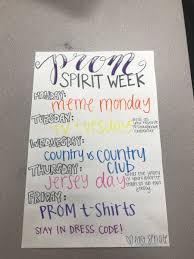 prom
SPIRIT WEEK
MONDAY:
meme monday
TUESDAY:
tv tuesday
WEDNESDAY:
country vs country
club
THURSDAY:
jersey day
FRIDAY:
PROM t-shirts
STAY IN DRESS CODE!